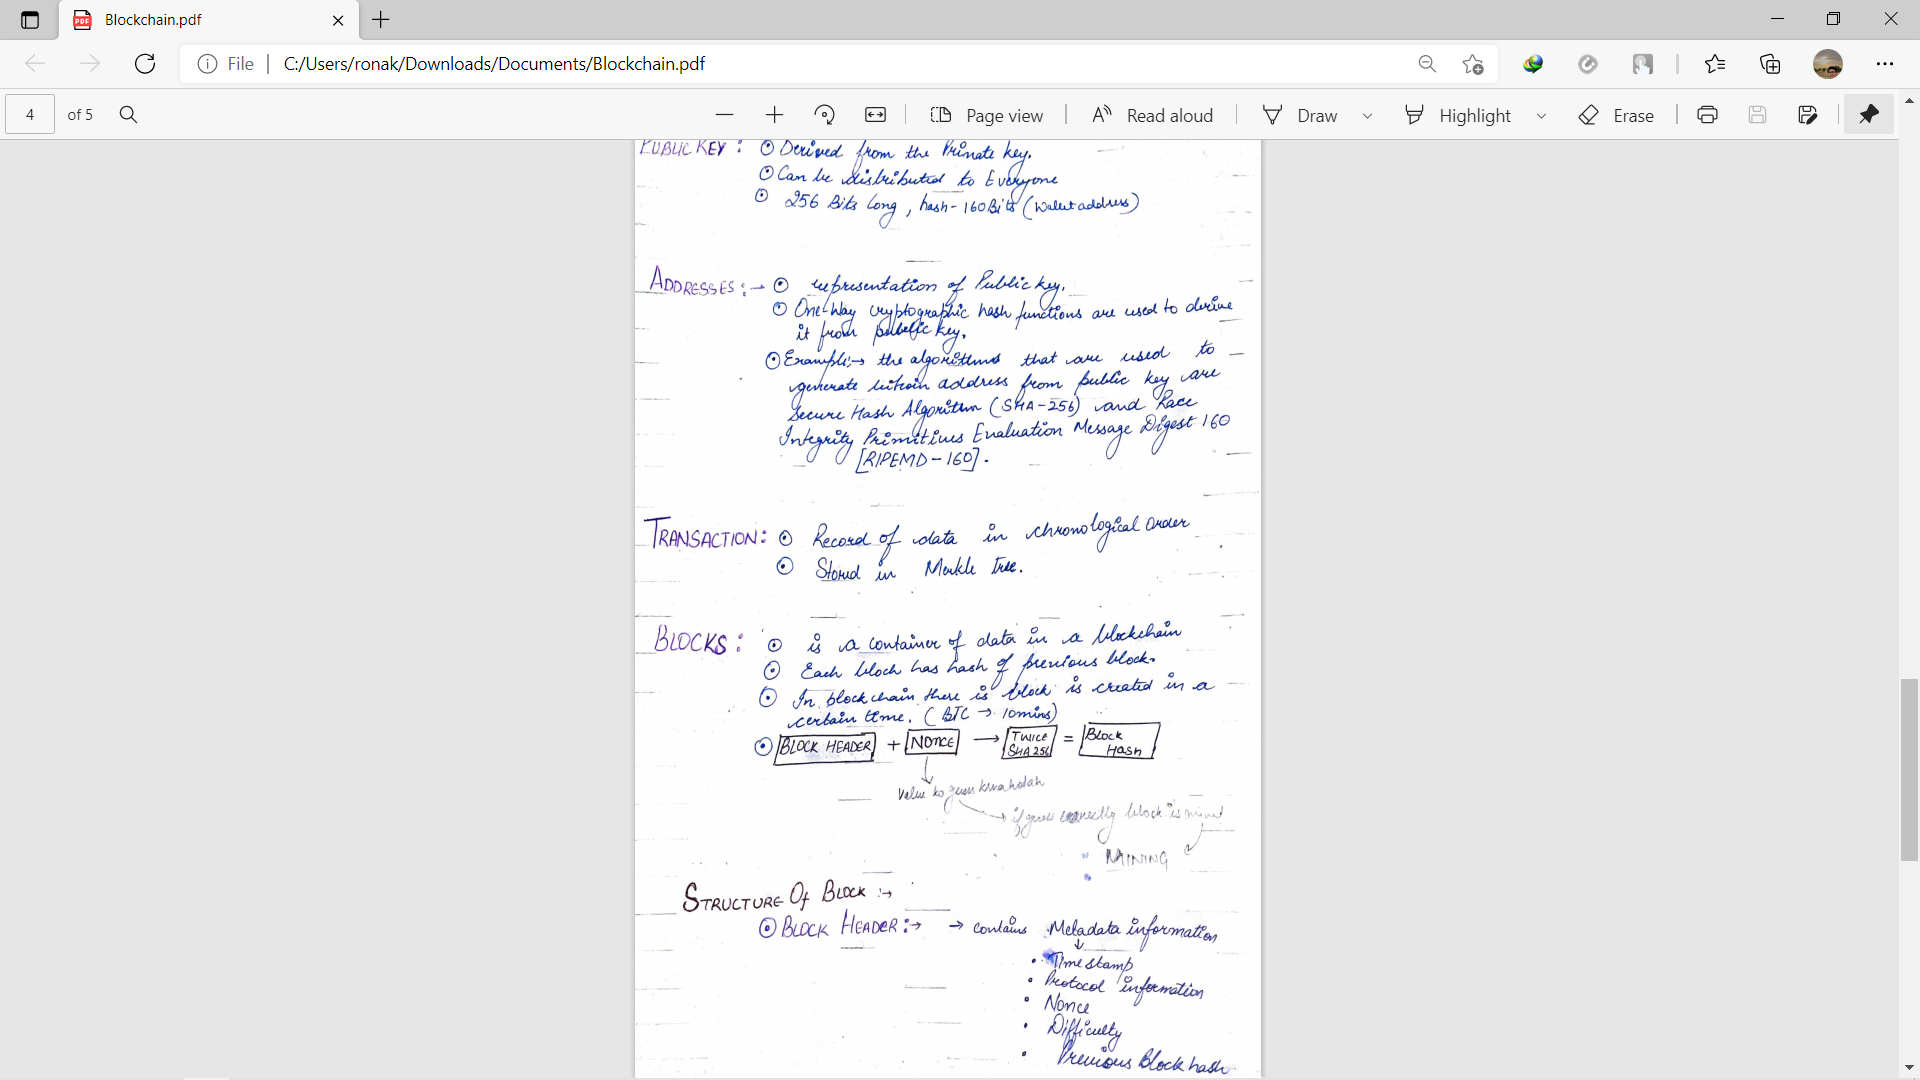 Blockchain.pdf
File
C:/Users/ronak/Downloads/Documents/Blockchain.pdf
4 of 5
Page view
Read aloud
Draw
Highlight
Erase
PUBLIC KEY : Derived from the Private key.
Can be distributed to Everyone
256 Bits long, hash - 160 Bits (Wallet address)
ADDRESSES :- representation of Public key.
One-Way cryptographic hash functions are used to derive
it from public key.
Example :→ the algorithms that are used to
generate bitcoin address from public key are
Secure Hash Algorithm (SHA-256) and Race
Integrity Primitives Evaluation Message Digest 160
[RIPEMD-160].
TRANSACTION : Record of data in chronological order
Stored in Merkle tree.
BLOCKS : is a container of data in a blockchain
Each block has hash of previous block.
In blockchain there is block is created in a
certain time. (BTC → 10mins)
BLOCK HEADER + NONCE → TWICE SHA256 = Block Hash
Value ko guess karna hota h
→ if guess correctly block is mined
MINING
STRUCTURE Of BLOCK :→
BLOCK HEADER :→ → contains Metadata information
• Timestamp
• Protocol information
• Nonce
• Difficulty
• Previous Block hash